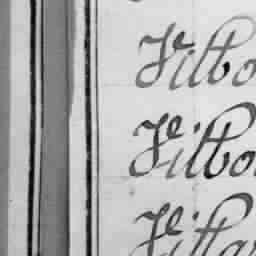 Vilbo
Vilbo
Villa